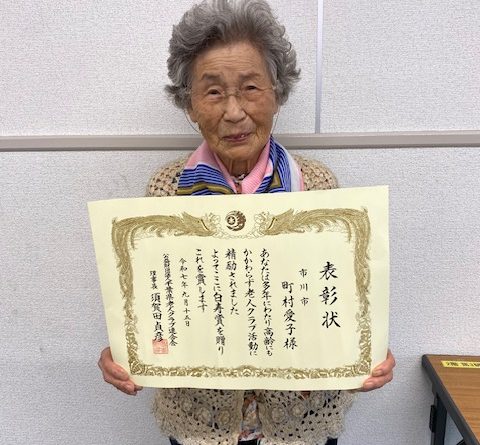 表彰状
市川市
町村愛子様
あなたは多年にわたり高齢にも
かかわらず老人クラブ活動に
精励されました
よってここに白寿賞を贈り
これを賞します
令和七年九月十五日
公益財団法人千葉県老人クラブ連合会
理事長 須賀田貞彦